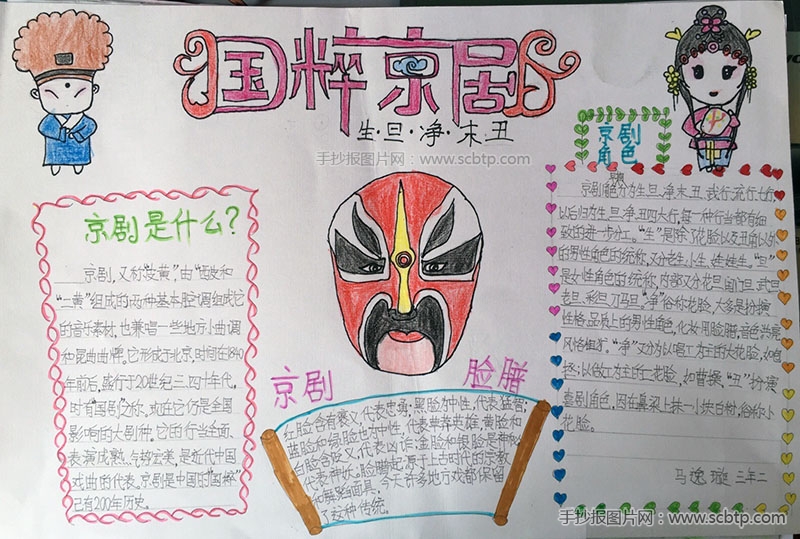 国粹京剧
生·旦·净·末·丑
手抄报图片网：www.scbtp.com
京剧是什么？
京剧，又称“皮黄”，由“西皮和
“二黄”组成的两种基本腔调组成它
的音乐素材，也兼唱一些地方小曲调
和昆曲曲牌。它形成于北京，时间在1840
年前后，盛行于20世纪三、四十年代，
时有“国剧”之称。现在它仍是全国
影响的大剧种。它的行当全面、
表演成熟、气势宏美，是近代中国
戏曲的代表。京剧是中国的“国粹”
已有200年历史。
京剧 脸谱
红脸含有褒义，代表忠勇；黑脸为中性，代表猛智；
蓝脸和绿脸也为中性，代表草莽英雄；黄脸和
白脸含贬义，代表凶诈；金脸和银脸是神秘
代表神妖；脸谱起源于上古时代的宗教
和舞蹈面具，今天许多地方戏都保留
了这种传统。
京剧
角色
早期
京剧角色分为生、旦、净、末、丑、武行、流行七行，
以后归为生、旦、净、丑四大行，每一种行当都有细
致的进一步分工。“生”是除了花脸以及丑角以外
的男性角色的统称，又分老生、小生、娃娃生。“旦”
是女性角色的统称，内部又分花旦、闺门旦、武旦
老旦、彩旦、刀马旦。“净”俗称花脸，大多是扮演
性格、品质上的男性角色，化妆用脸谱，音色洪亮
风格粗犷。“净”又分为以唱工为主的大花脸，如包
拯；以做工为主的二花脸，如曹操。“丑”扮演
喜剧角色，因在鼻梁上抹一小块白粉，俗称小
花脸。
马逸璇 三年二
手抄报图片网：www.scbtp.com